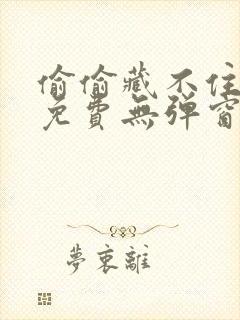 偷偷藏不住
免費無彈窗
夢裏離